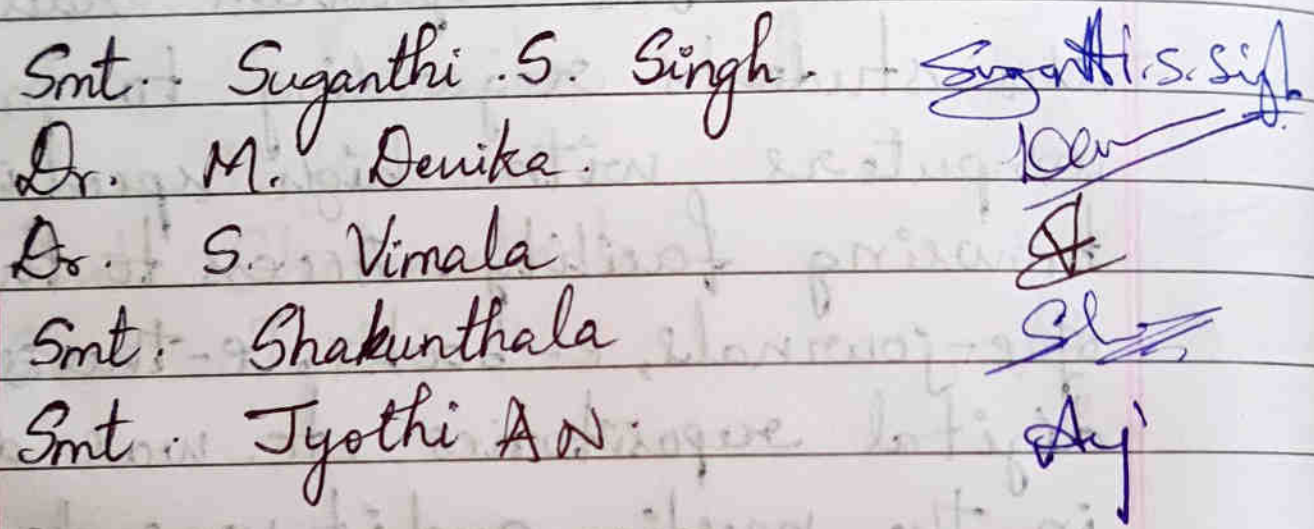 Smt. Suganthi .S. Singh. Suganthi.S.Singh
Dr. M. Devika.
Dr. S. Vimala
Smt. Shakunthala
Smt. Jyothi A N.